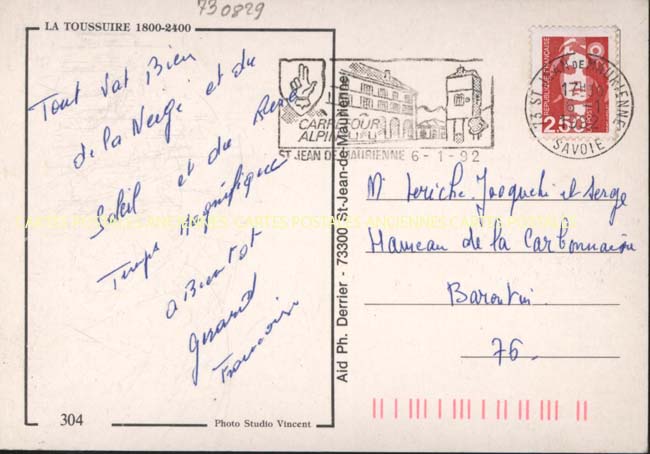 730829
LA TOUSSUIRE 1800-2400
Tout Vat Bien
de la Neige et du
Soleil et du Repos
Temps Magnifique
a Bientot
Gerard
Francoise
304
Photo Studio Vincent
Aid Ph. Derrier - 73300 St-Jean-de-Maurienne
CARREFOUR
ALPIN
ST JEAN DE MAURIENNE 6-1-92
73 ST JEAN DE MAURIENNE
17H
6-1
1992
SAVOIE
2,50
M Leriche Jacqueline et Serge
Hameau de la Carbonnière
Barentin
76
CARTES POSTALES ANCIENNES CARTES POSTALES ANCIENNES CARTES POSTALES